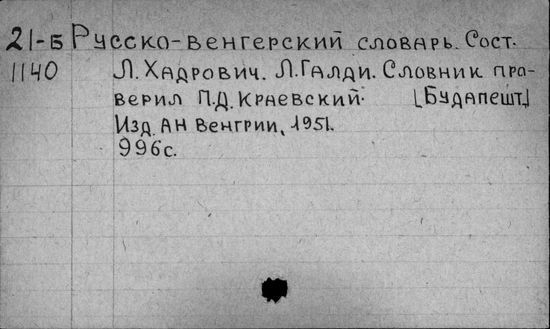 21-Б Русско-венгерский словарь. Сост.
1140 Л. Хадрович. Л. Галди. Словник про-
верил П.Д. Краевский. [Будапешт]
Изд. АН Венгрии, 1951.
996с.